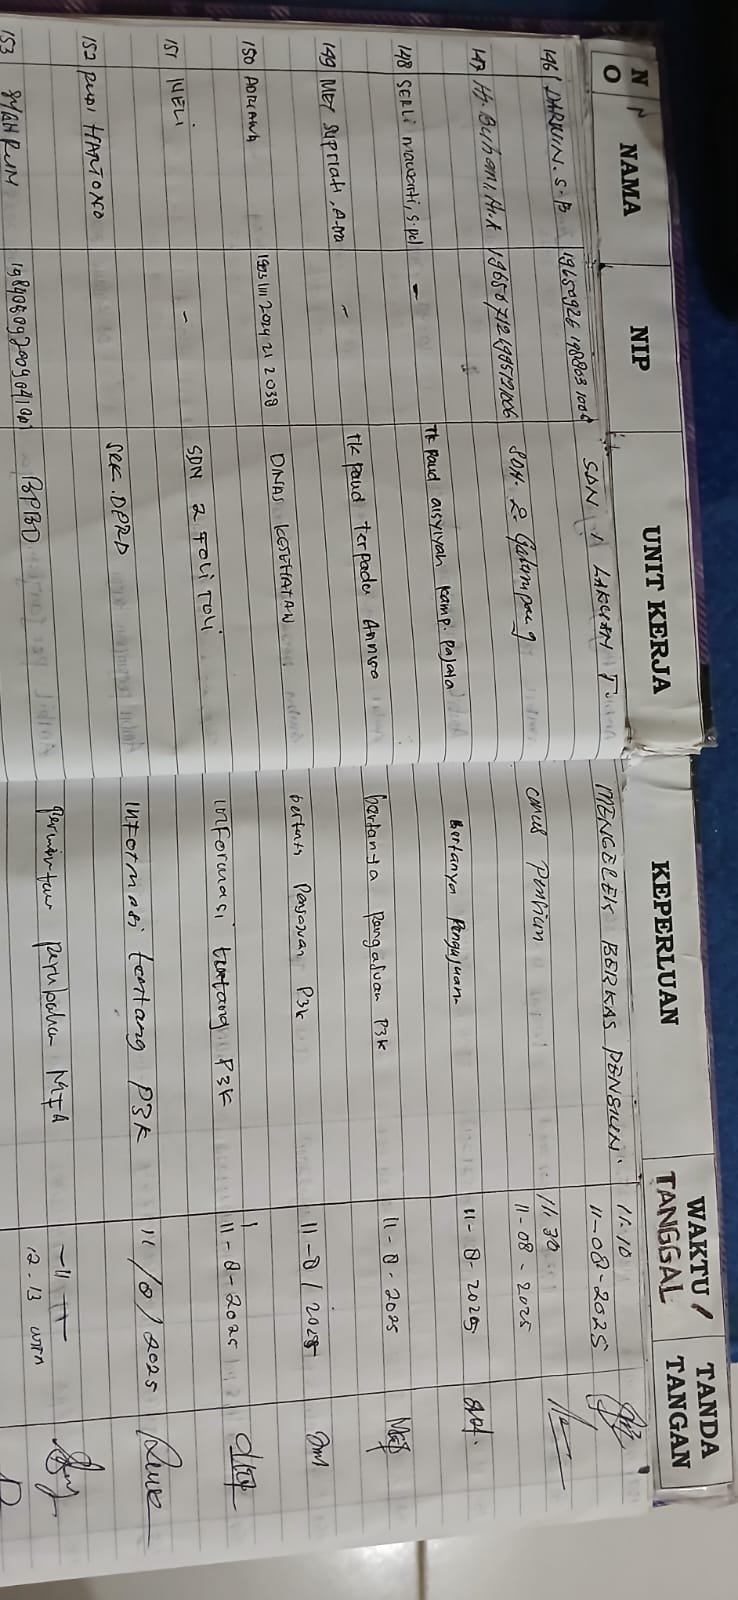 NO NAMA NIP UNIT KERJA KEPERLUAN WAKTU / TANGGAL TANDA TANGAN
146 DARWIN. S.P 19650926 198803 1008 SDN 1 LAKUAN T. MENGECEK BERKAS PENSIUN. 11.10
11-08-2025
147 Hj. Buhani, 19650712 198512 1006 SDN. 2 Galumpang 11.30
11-08-2025
148 SERLI mawanti, S.pd - TK Paud aisyiyah kamp. Pajala Bertanya Pengajuan 11-8-2025
149 MEY Supriati, A.ma - TK paud terpadu Annisa bertanya pengajuan P3K 11-8-2025
150 2024 21 2038 DINAS KESEHATAN Pengajuan P3K 11-8/2025
151 MELI - SDN 2 Toli Toli Informasi tentang P3K 11-8-2025
152 RUDI HARTONO Sek. DPRD Informasi tentang P3K 11/8/2025
153 SYAHRUM BPBD permintaan perubahan MFA -11-
12.13 WITA